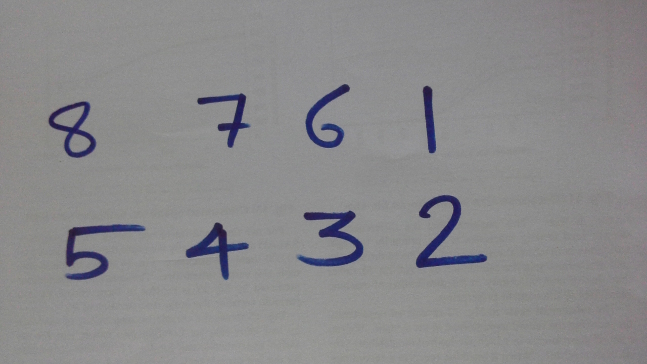 8 7 6 1
5 4 3 2